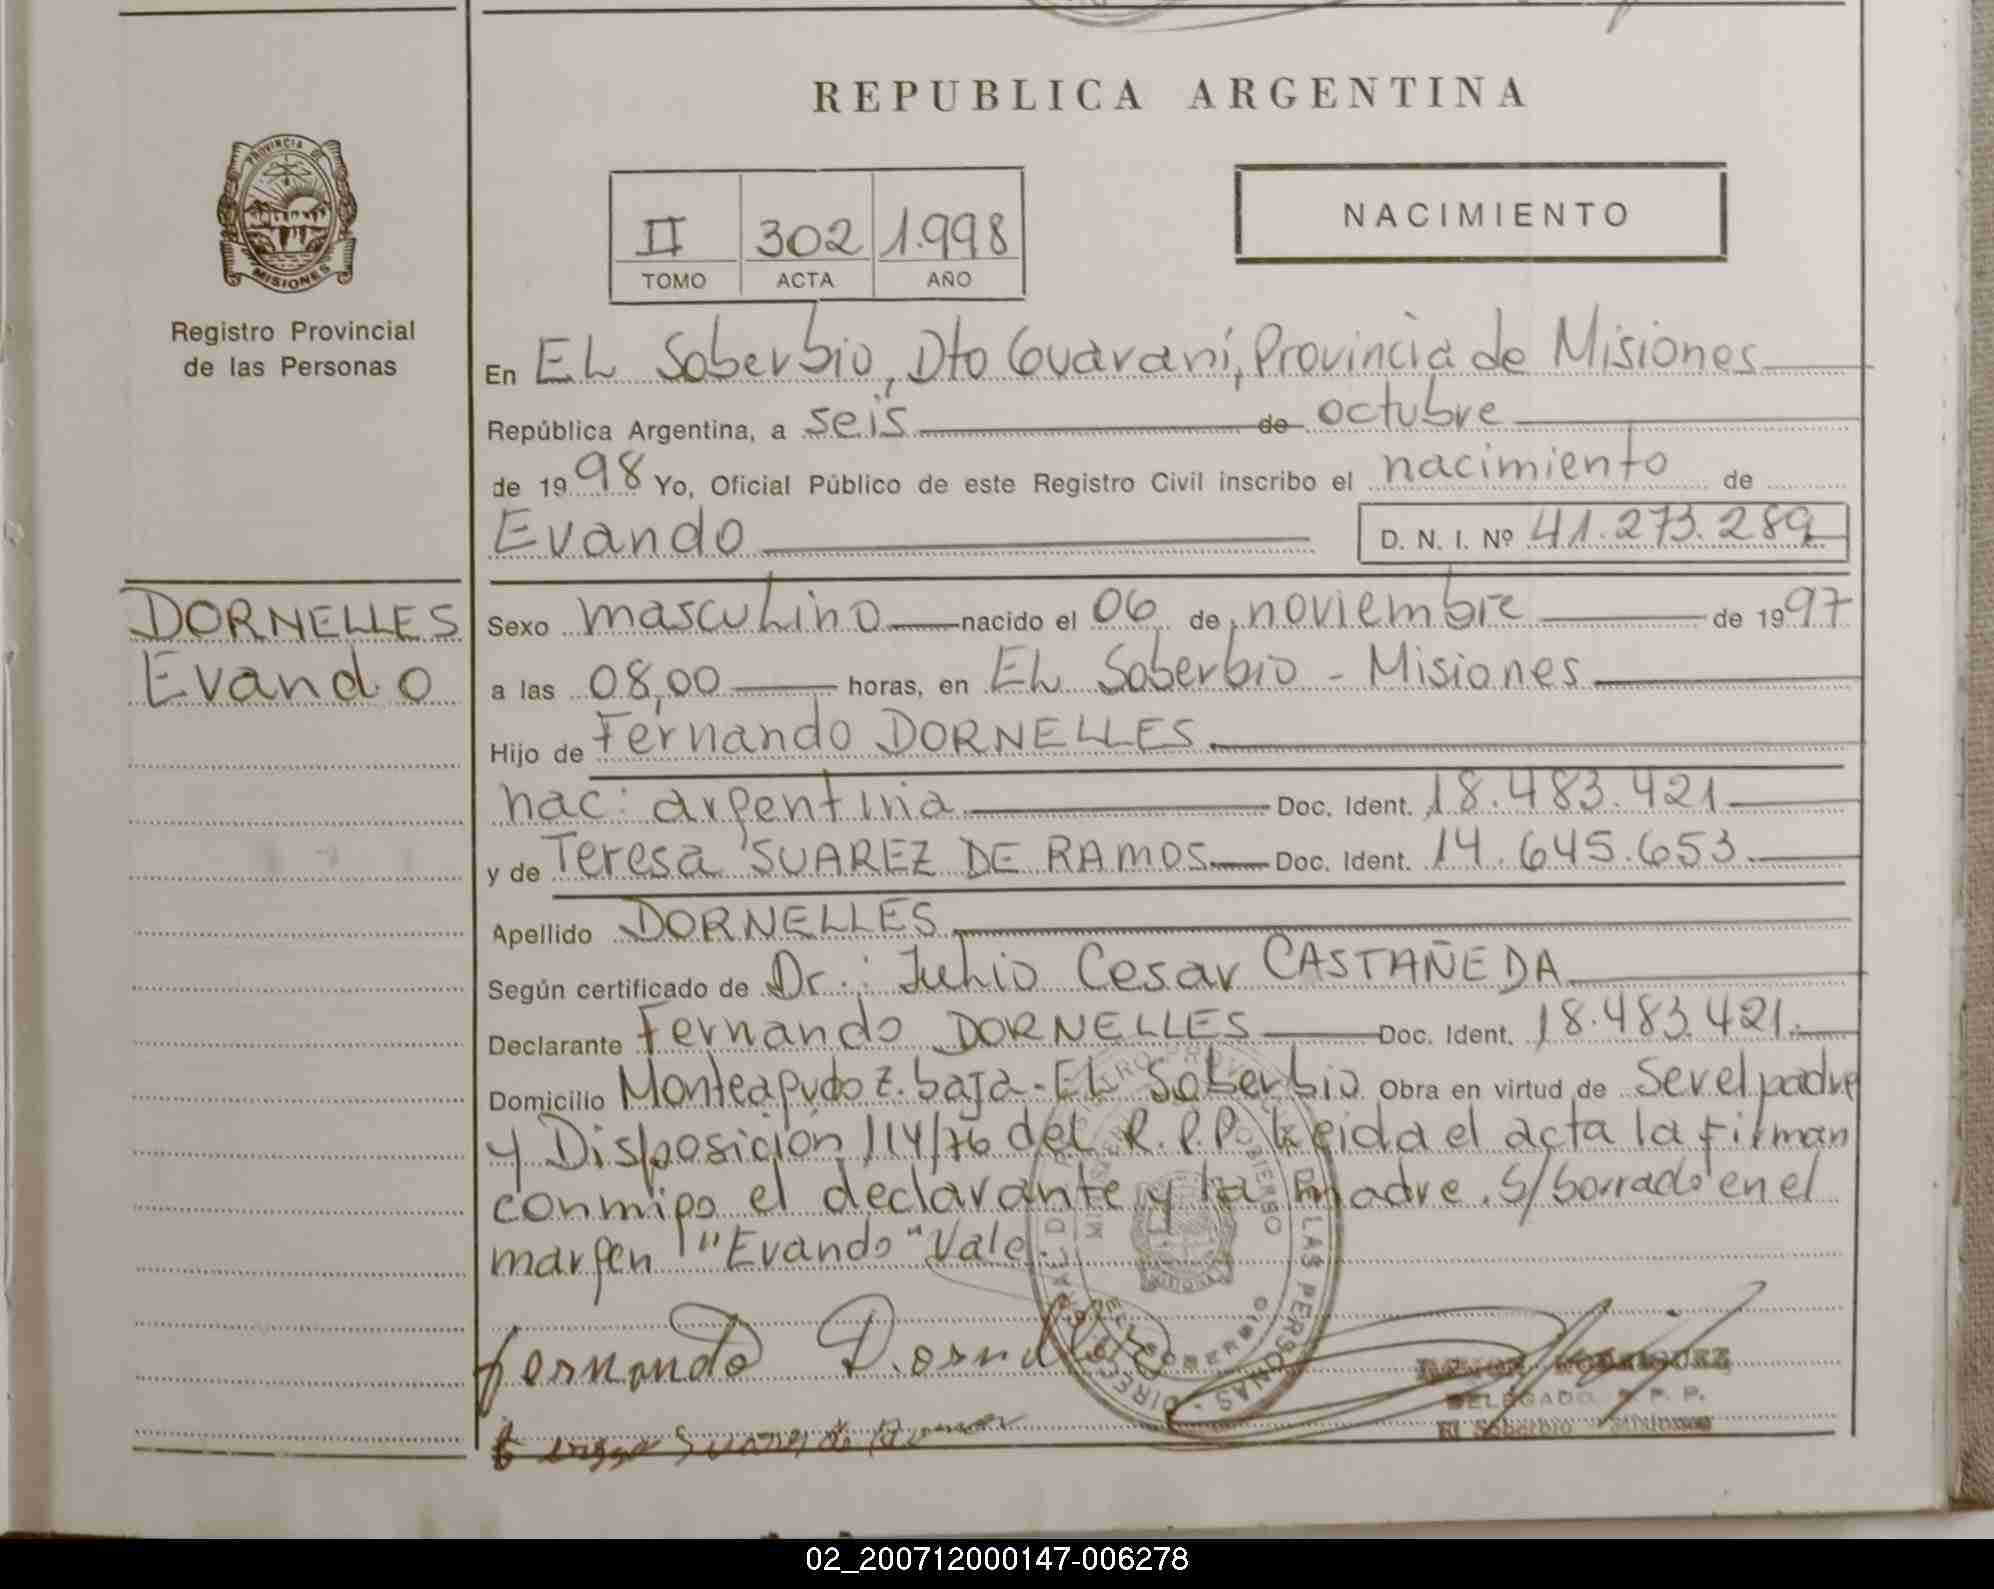 REPUBLICA ARGENTINA
PROVINCIA DE
MISIONES
Registro Provincial
de las Personas
II 302 1.998
TOMO ACTA AÑO
NACIMIENTO
En EL Soberbio, Dto Guaraní, Provincia de Misiones
República Argentina, a seis de octubre
de 1998 Yo, Oficial Público de este Registro Civil inscribo el nacimiento de
Evando D. N. I. Nº 41.273.289
DORNELLES
Evando
Sexo masculino nacido el 06 de noviembre de 1997
a las 08,00 horas, en EL Soberbio - Misiones
Hijo de Fernando DORNELLES
nac: argentina Doc. Ident. 18.483.421
y de Teresa SUAREZ DE RAMOS Doc. Ident. 14.645.653
Apellido DORNELLES
Según certificado de Dr.: Julio Cesar CASTAÑEDA
Declarante Fernando DORNELLES Doc. Ident. 18.483.421.
Domicilio Monteagudo z. baja - EL Soberbio Obra en virtud de Ser el padre
y Disposición 114/76 del R.P.P. Leida el acta la firman
conmigo el declarante y la madre. S/borrado en el
margen "Evando" Vale.
fernando Dornelles
Suarez de Ramos
DELEGADO R. P. P.
El Soberbio - Misiones
02_200712000147-006278